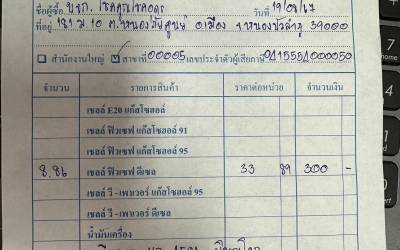 ชื่อผู้ซื้อ บจก. โชคคูณโชคอุดร วันที่ 19/07/67
ที่อยู่ 181 ม.10 ต.หนองบัว อ.เมือง จ.หนองบัวลำภู 39000
สำนักงานใหญ่ สาขาที่ 00005 เลขประจำตัวผู้เสียภาษี
จำนวน รายการสินค้า ราคาต่อหน่วย จำนวนเงิน
เชลล์ E20 แก๊สโซฮอล์
เชลล์ ฟิวเซฟ แก๊สโซฮอล์ 91
เชลล์ ฟิวเซฟ แก๊สโซฮอล์ 95
8.86 เชลล์ ฟิวเซฟ ดีเซล 33 89 300 -
เชลล์ วี - เพาเวอร์ แก๊สโซฮอล์ 95
เชลล์ วี - เพาเวอร์ ดีเซล
น้ำมันเครื่อง